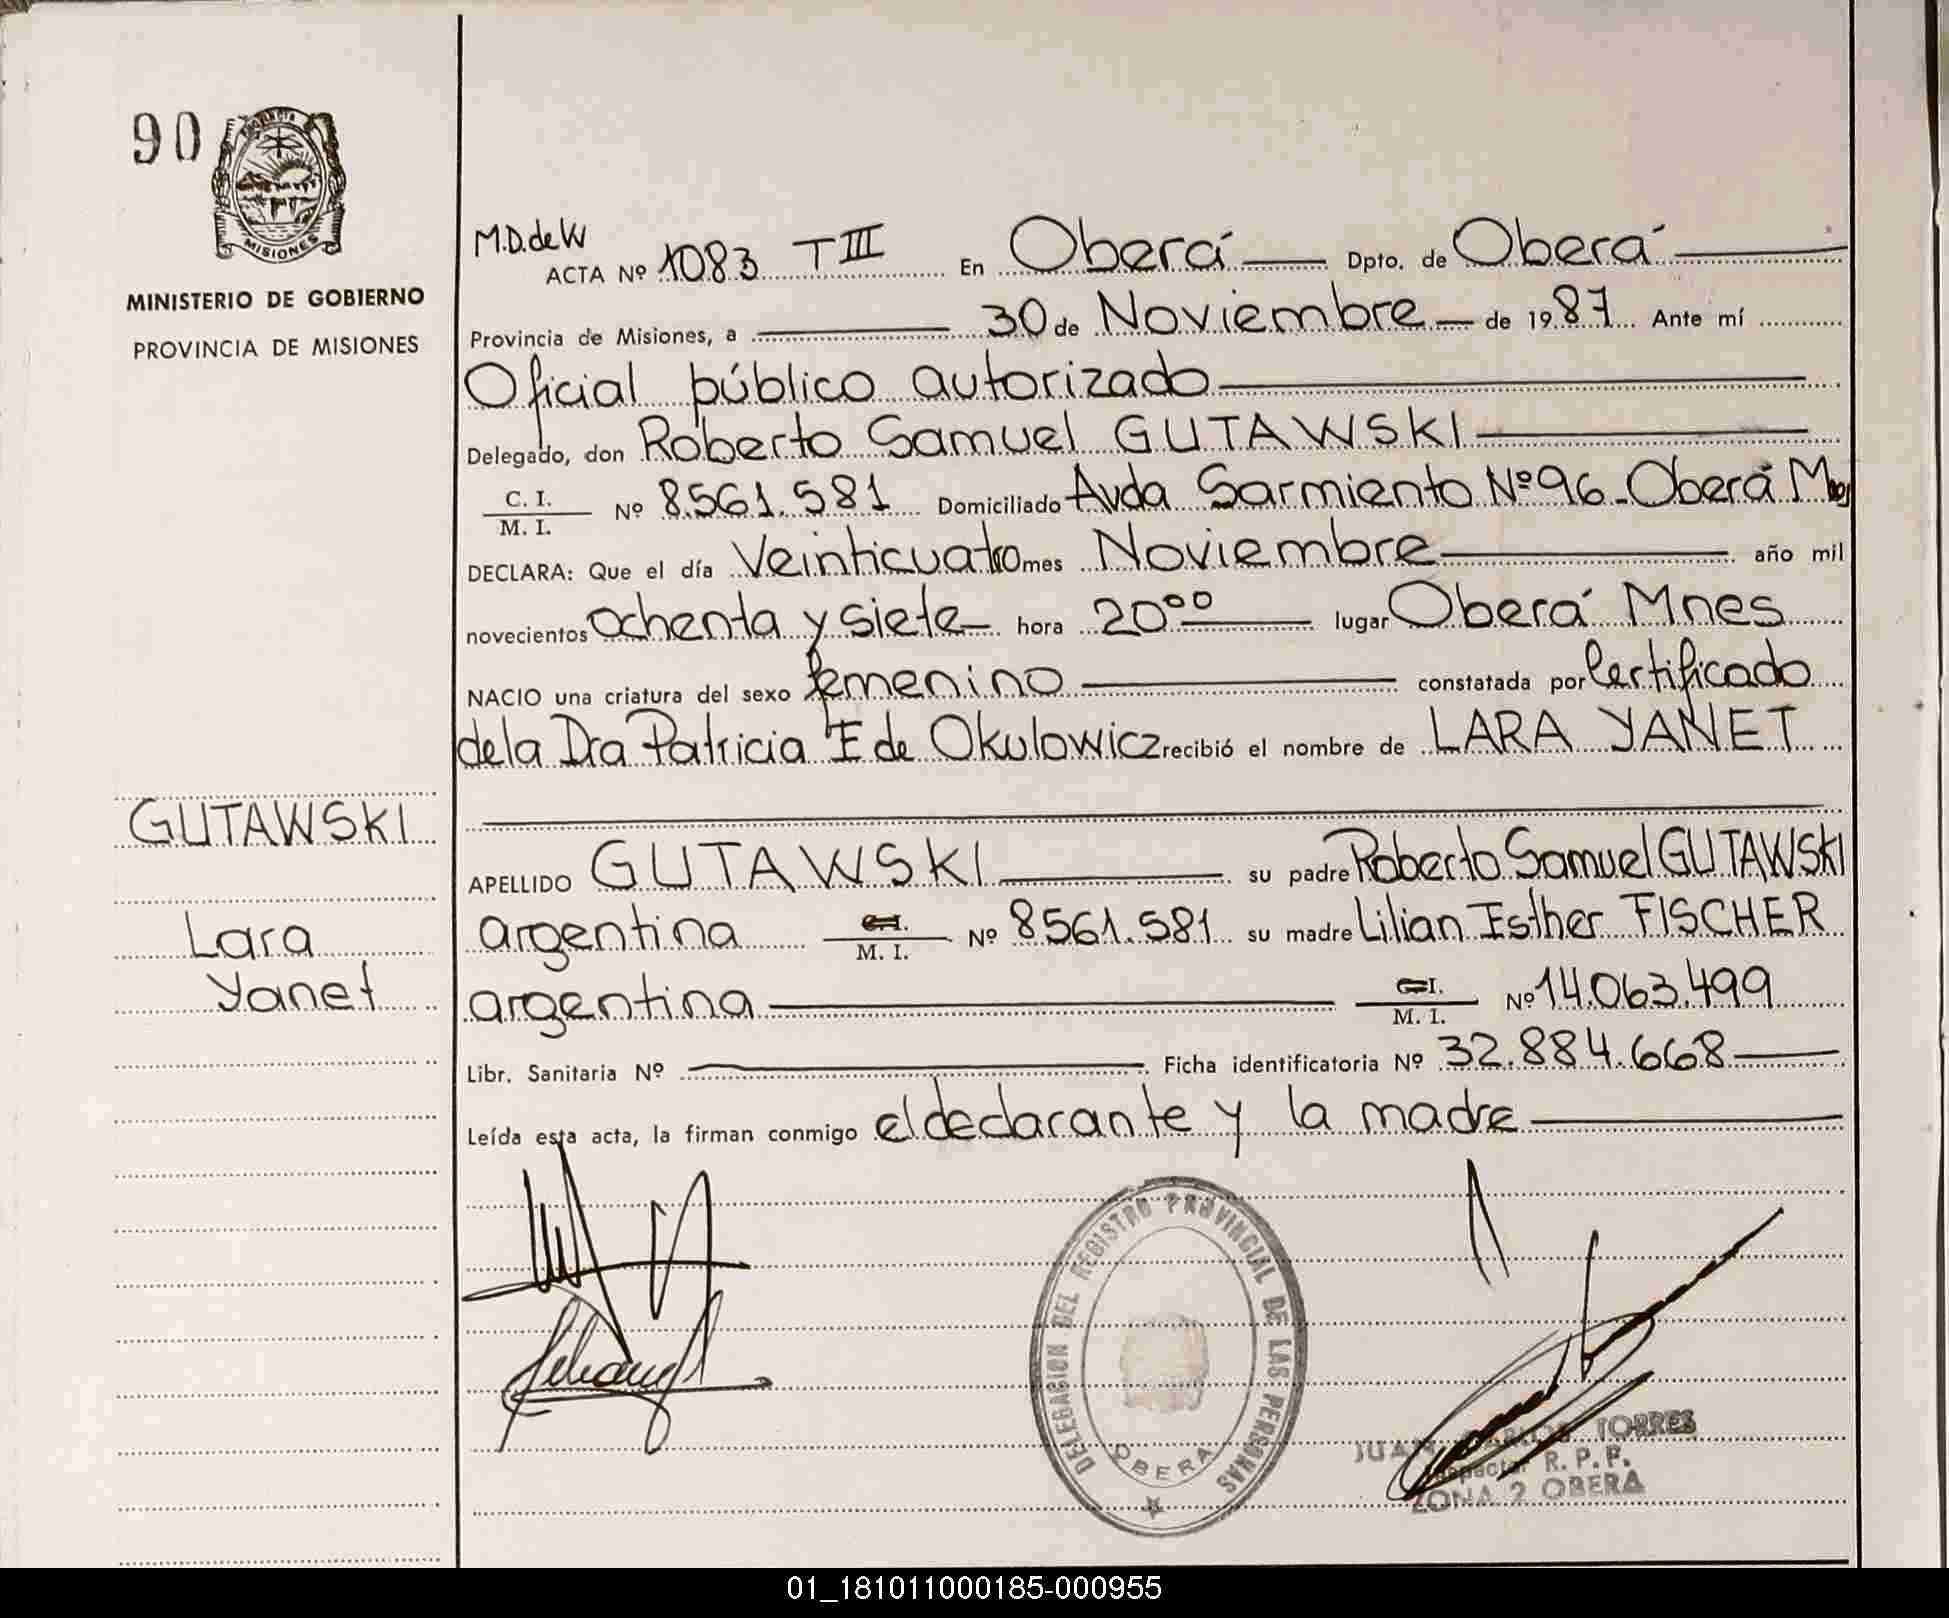 90
PROVINCIA
MISIONES
MINISTERIO DE GOBIERNO
PROVINCIA DE MISIONES
M.D.deW
ACTA Nº 1083 T III En Oberá Dpto. de Oberá
Provincia de Misiones, a 30 de Noviembre de 1987 Ante mí
Oficial público autorizado
Delegado, don Roberto Samuel GUTAWSKI
C. I.
M. I. Nº 8.561.581 Domiciliado Avda Sarmiento Nº 96 - Oberá Mnes
DECLARA: Que el día Veinticuatro mes Noviembre año mil
novecientos Ochenta y siete hora 20⁰⁰ lugar Oberá Mnes
NACIO una criatura del sexo femenino constatada por Certificado
de la Dra Patricia E de Okulowicz recibió el nombre de LARA YANET
GUTAWSKI
Lara
Yanet
APELLIDO GUTAWSKI su padre Roberto Samuel GUTAWSKI
argentina C.I. M. I. Nº 8561.581 su madre Lilian Esther FISCHER
argentina C.I. M. I. Nº 14.063.499
Libr. Sanitaria Nº Ficha identificatoria Nº 32.884.668
Leída esta acta, la firman conmigo el declarante y la madre
DELEGACION DEL REGISTRO PROVINCIAL DE LAS PERSONAS
OBERA
JUAN CARLOS TORRES
Inspector R. P. P.
ZONA 2 OBERA
01_181011000185-000955